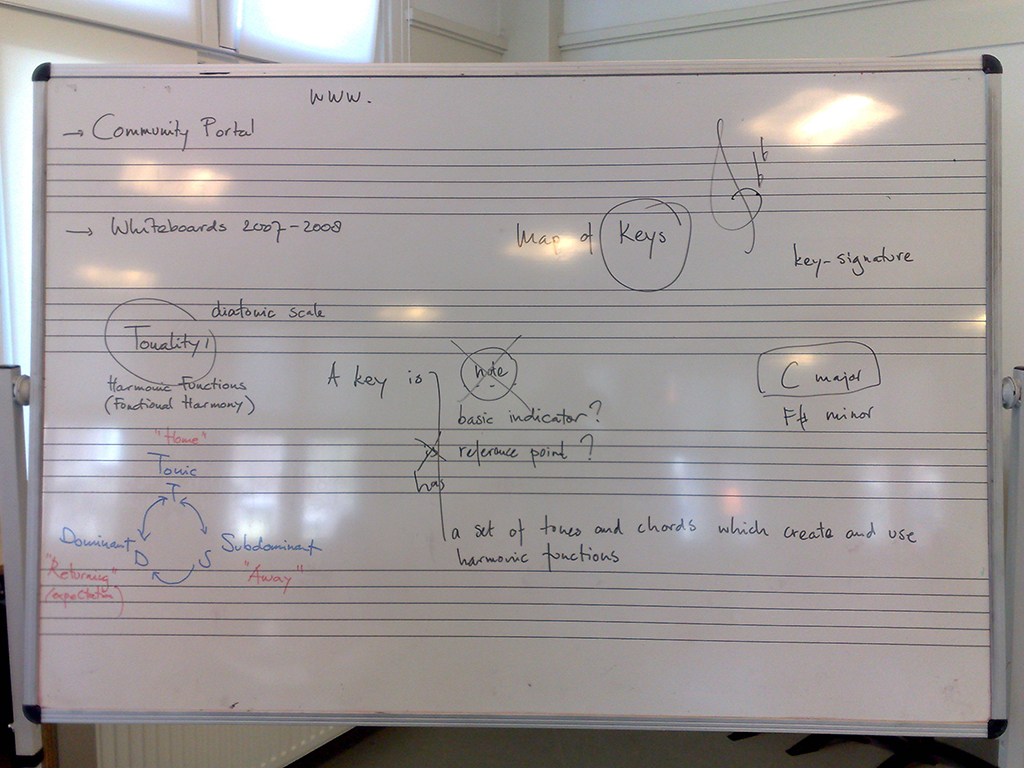 www.
→ Community Portal
→ Whiteboards 2007-2008
Map of Keys
key-signature
diatonic scale
Tonality
Harmonic Functions
(Functional Harmony)
A key is
note
basic indicator?
reference point?
has
a set of tones and chords which create and use
harmonic functions
C major
F# minor
"Home"
Tonic
T
Dominant D
S Subdominant
"Returning"
(expectation)
"Away"